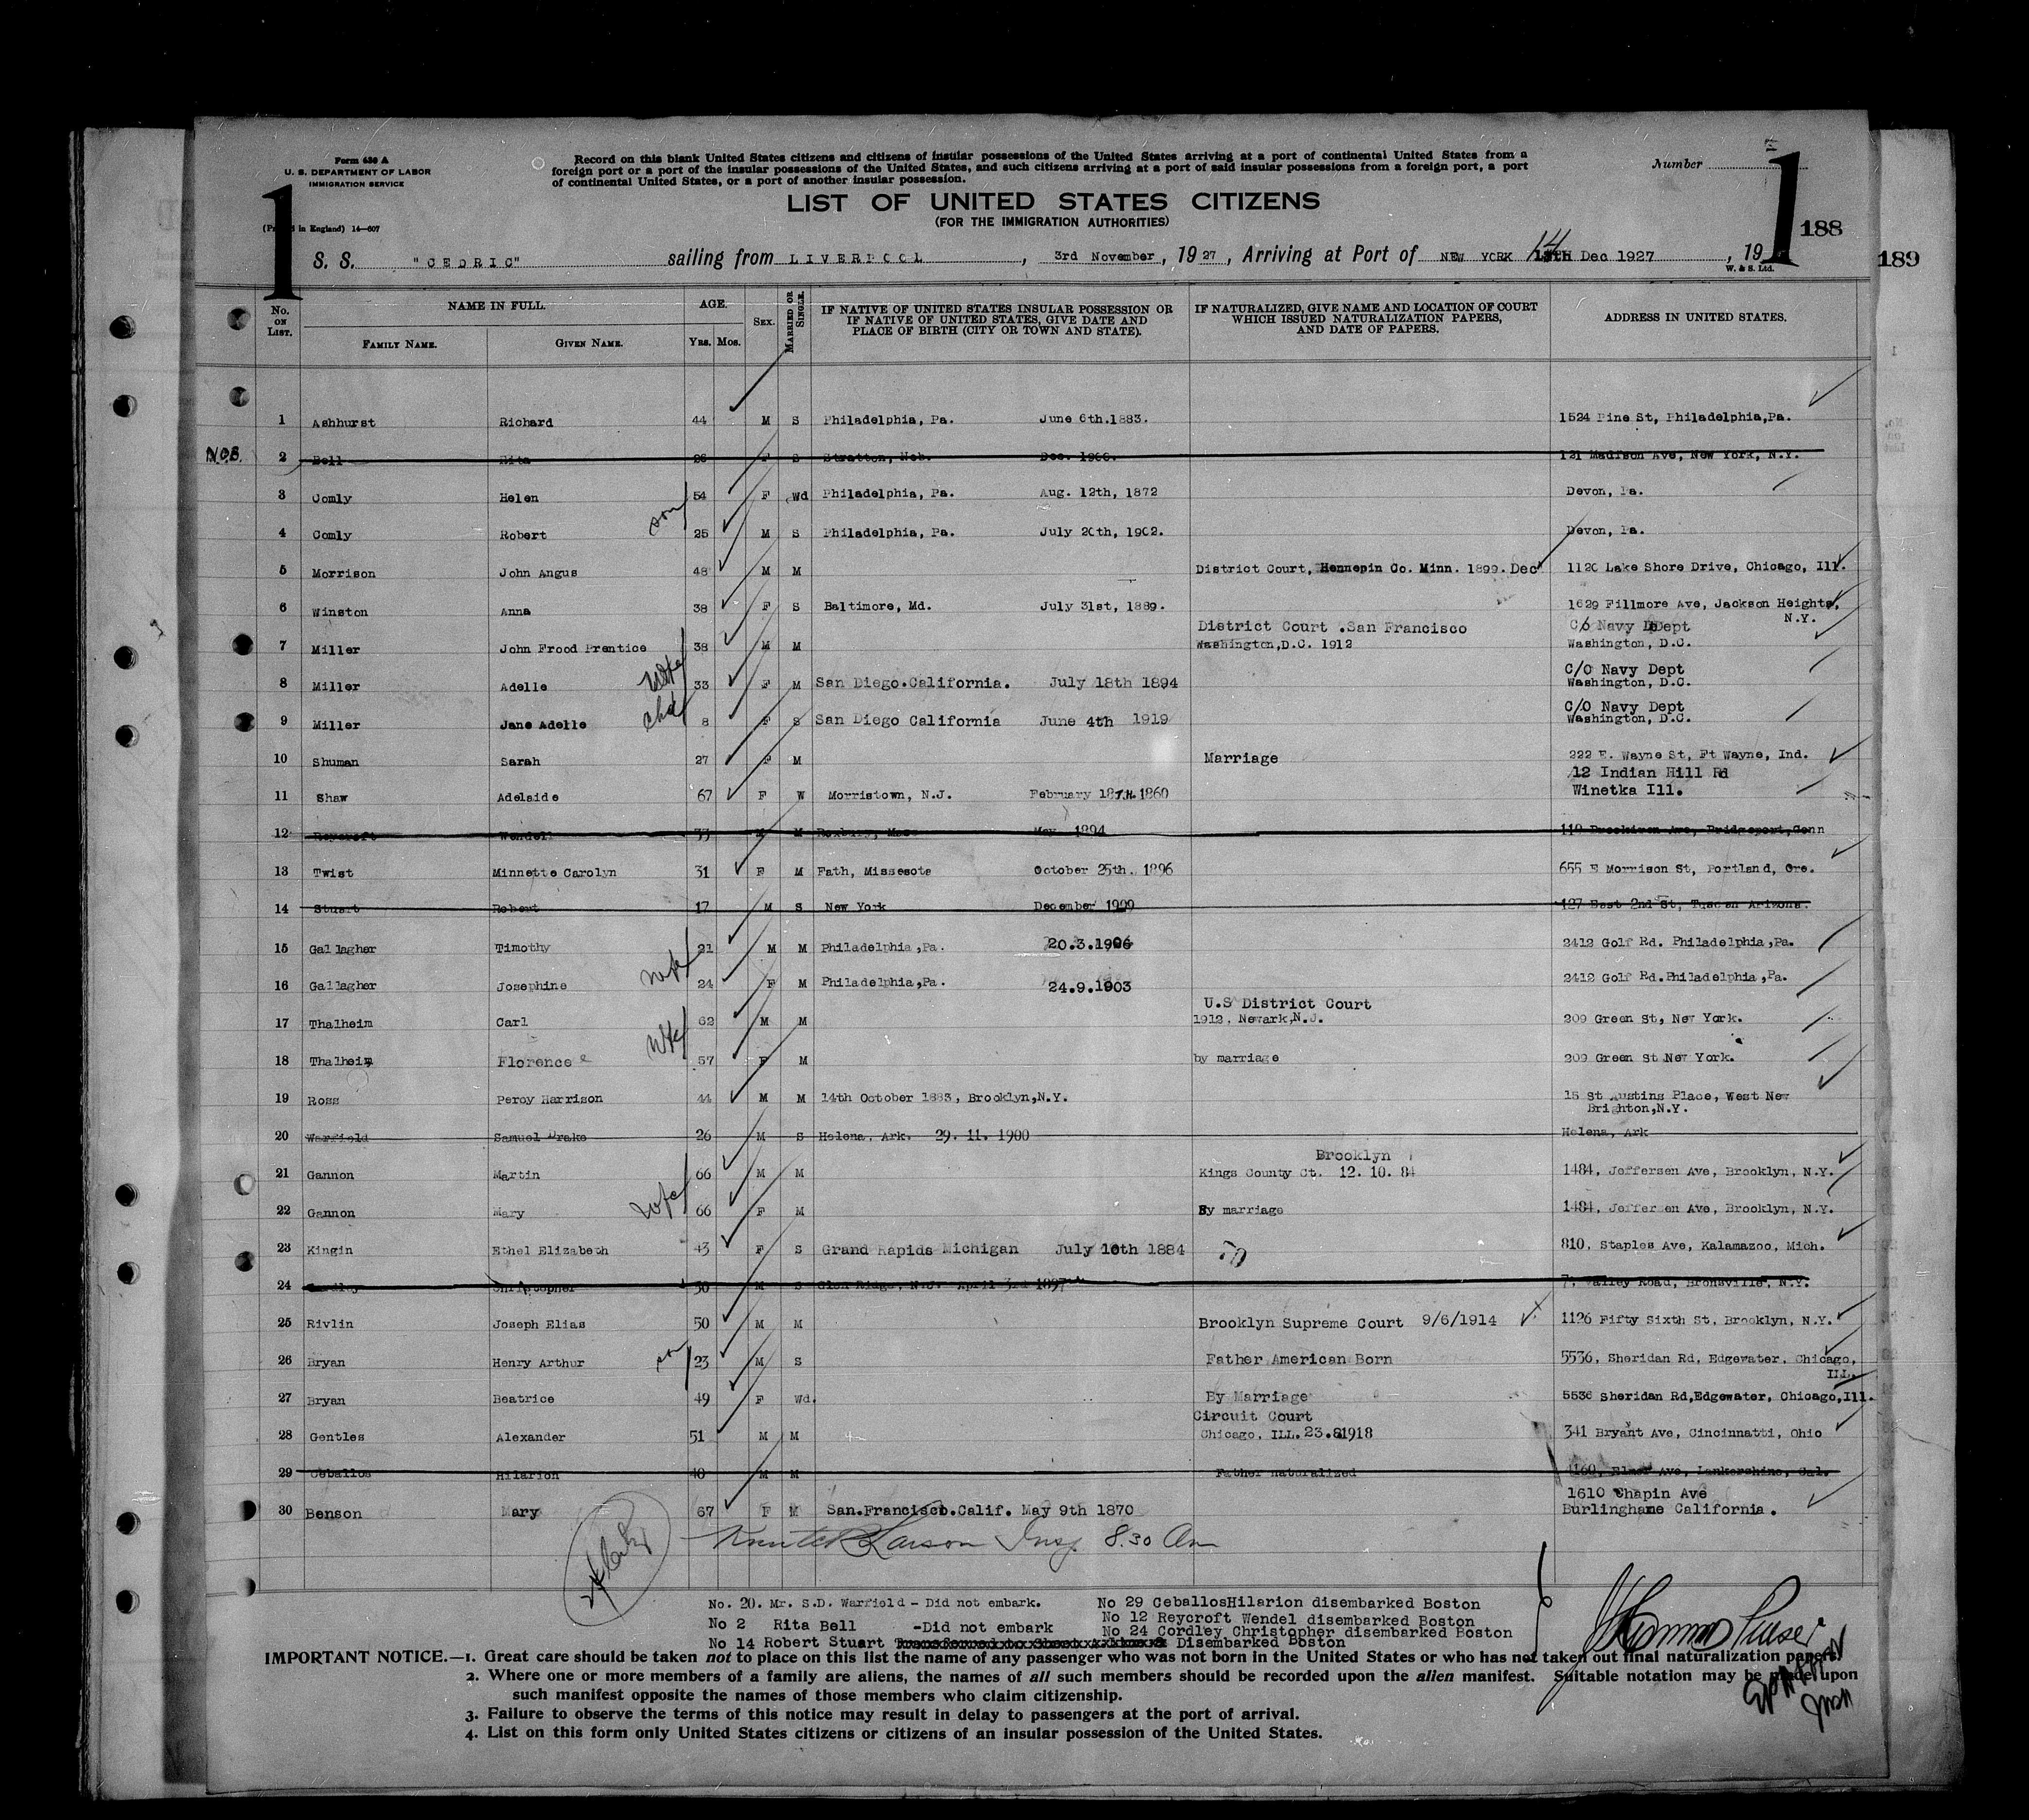 Form 630 A
U. S. DEPARTMENT OF LABOR
IMMIGRATION SERVICE
(Printed in England) 14—607
Record on this blank United States citizens and citizens of insular possessions of the United States arriving at a port of continental United States from a
foreign port or a port of the insular possessions of the United States, and such citizens arriving at a port of said insular possessions from a foreign port, a port
of continental United States, or a port of another insular possession.
Number
1
1
188
189
LIST OF UNITED STATES CITIZENS
(FOR THE IMMIGRATION AUTHORITIES)
S. S. "CEDRIC" sailing from LIVERPOOL, 3rd November, 1927, Arriving at Port of NEW YORK 14 Dec 1927, 19
W. & S. Ltd.
No. ON LIST. NAME IN FULL. AGE. SEX. MARRIED OR SINGLE. IF NATIVE OF UNITED STATES INSULAR POSSESSION OR IF NATIVE OF UNITED STATES, GIVE DATE AND PLACE OF BIRTH (CITY OR TOWN AND STATE). IF NATURALIZED, GIVE NAME AND LOCATION OF COURT WHICH ISSUED NATURALIZATION PAPERS, AND DATE OF PAPERS. ADDRESS IN UNITED STATES.
FAMILY NAME. GIVEN NAME. YRS. MOS.
1 Ashhurst Richard 44 M S Philadelphia, Pa. June 6th.1883. 1524 Pine St, Philadelphia,Pa.
N.O.B. 2 Bell Rita 26 F S Stratton, Neb. Dec. 121 Madison Ave, New York, N.Y.
3 Comly Helen 54 F Wd Philadelphia, Pa. Aug. 12th, 1872 Devon, Pa.
4 Comly Robert son 25 M S Philadelphia, Pa. July 20th, 1902. Devon, Pa.
5 Morrison John Angus 48 M M District Court, Hennepin Co. Minn. 1899. Dec 1120 Lake Shore Drive, Chicago, Ill.
6 Winston Anna 38 F S Baltimore, Md. July 31st, 1889. 1629 Fillmore Ave, Jackson Heights, N.Y.
District Court .San Francisco C/o Navy Dept
7 Miller John Frood Prentice 38 M M Washington,D.C. 1912 Washington, D.C.
C/O Navy Dept
8 Miller Adelle wife 33 F M San Diego.California. July 18th 1894 Washington, D.C.
C/O Navy Dept
9 Miller Jane Adelle chd 8 F S San Diego California June 4th 1919 Washington, D.C.
10 Shuman Sarah 27 F M Marriage 222 E. Wayne St, Ft Wayne, Ind.
12 Indian Hill Rd
11 Shaw Adelaide 67 F W Morristown, N.J. February 18TH.1860 Winetka Ill.
12 Reycroft Wendell 33 M M Roxbury, Mass May 1894 Ave, Bridgeport,Conn
13 Twist Minnette Carolyn 31 F M Fath, Missesota October 25th. 1896 655 E Morrison St, Portland, Ore.
14 Stuart Robert 17 M S New York December 1909 127 East 2nd St, Tuscan Arizona.
15 Gallagher Timothy 21 M M Philadelphia,Pa. 20.3.1906 2412 Golf Rd. Philadelphia,Pa.
16 Gallagher Josephine wife 24 F M Philadelphia,Pa. 24.9.1903 2412 Golf Rd.Philadelphia,Pa.
U.S District Court
17 Thalheim Carl 62 M M 1912, Newark,N.J. 209 Green St, New York.
18 Thalheim Florence wife 57 F M by marriage 209 Green St New York.
19 Ross Percy Harrison 44 M M 14th October 1883, Brooklyn,N.Y. 15 St Austins Place, West New
Brighton,N.Y.
20 Warfield Samuel Drake 26 M S Helena, Ark. 29. 11. 1900 Helena, Ark
Brooklyn
21 Gannon Martin 66 M M Kings County Ct. 12. 10. 84 1484, Jeffersen Ave, Brooklyn, N.Y.
22 Gannon Mary wife 66 F M By marriage 1484, Jeffersen Ave, Brooklyn, N.Y.
23 Kingin Ethel Elizabeth 43 F S Grand Rapids Michigan July 10th 1884 810, Staples Ave, Kalamazoo, Mich.
24 Cordley Christopher 30 M S Glen Ridge, N.J. April 3rd 1897 7, Valley Road, Bronsville, N.Y.
25 Rivlin Joseph Elias 50 M M Brooklyn Supreme Court 9/6/1914 1126 Fifty Sixth St, Brooklyn, N.Y.
26 Bryan Henry Arthur son 23 M S Father American Born 5536, Sheridan Rd, Edgewater, Chicago,
ILL.
27 Bryan Beatrice 49 F Wd. By Marriage 5536 Sheridan Rd,Edgewater, Chicago,Ill.
Circuit Court
28 Gentles Alexander 51 M M Chicago, ILL. 23.81918 341 Bryant Ave, Cincinnatti, Ohio
29 Ceballos Hilarion 40 M M Father naturalized Ave, Lankerchine, Cal.
1610 Chapin Ave
30 Benson Mary 67 F M San.Francisco.Calif. May 9th 1870 Burlinghame California.
Larson Insp 8.30 Am
No. 20. Mr. S.D. Warfield - Did not embark. No 29 CeballosHilarion disembarked Boston
No 2 Rita Bell -Did not embark No 12 Reycroft Wendel disembarked Boston
No 24 Cordley Christopher disembarked Boston
No 14 Robert Stuart Disembarked Boston
Purser
IMPORTANT NOTICE.—1. Great care should be taken not to place on this list the name of any passenger who was not born in the United States or who has not taken out final naturalization papers.
2. Where one or more members of a family are aliens, the names of all such members should be recorded upon the alien manifest. Suitable notation may be made upon
such manifest opposite the names of those members who claim citizenship.
3. Failure to observe the terms of this notice may result in delay to passengers at the port of arrival.
4. List on this form only United States citizens or citizens of an insular possession of the United States.